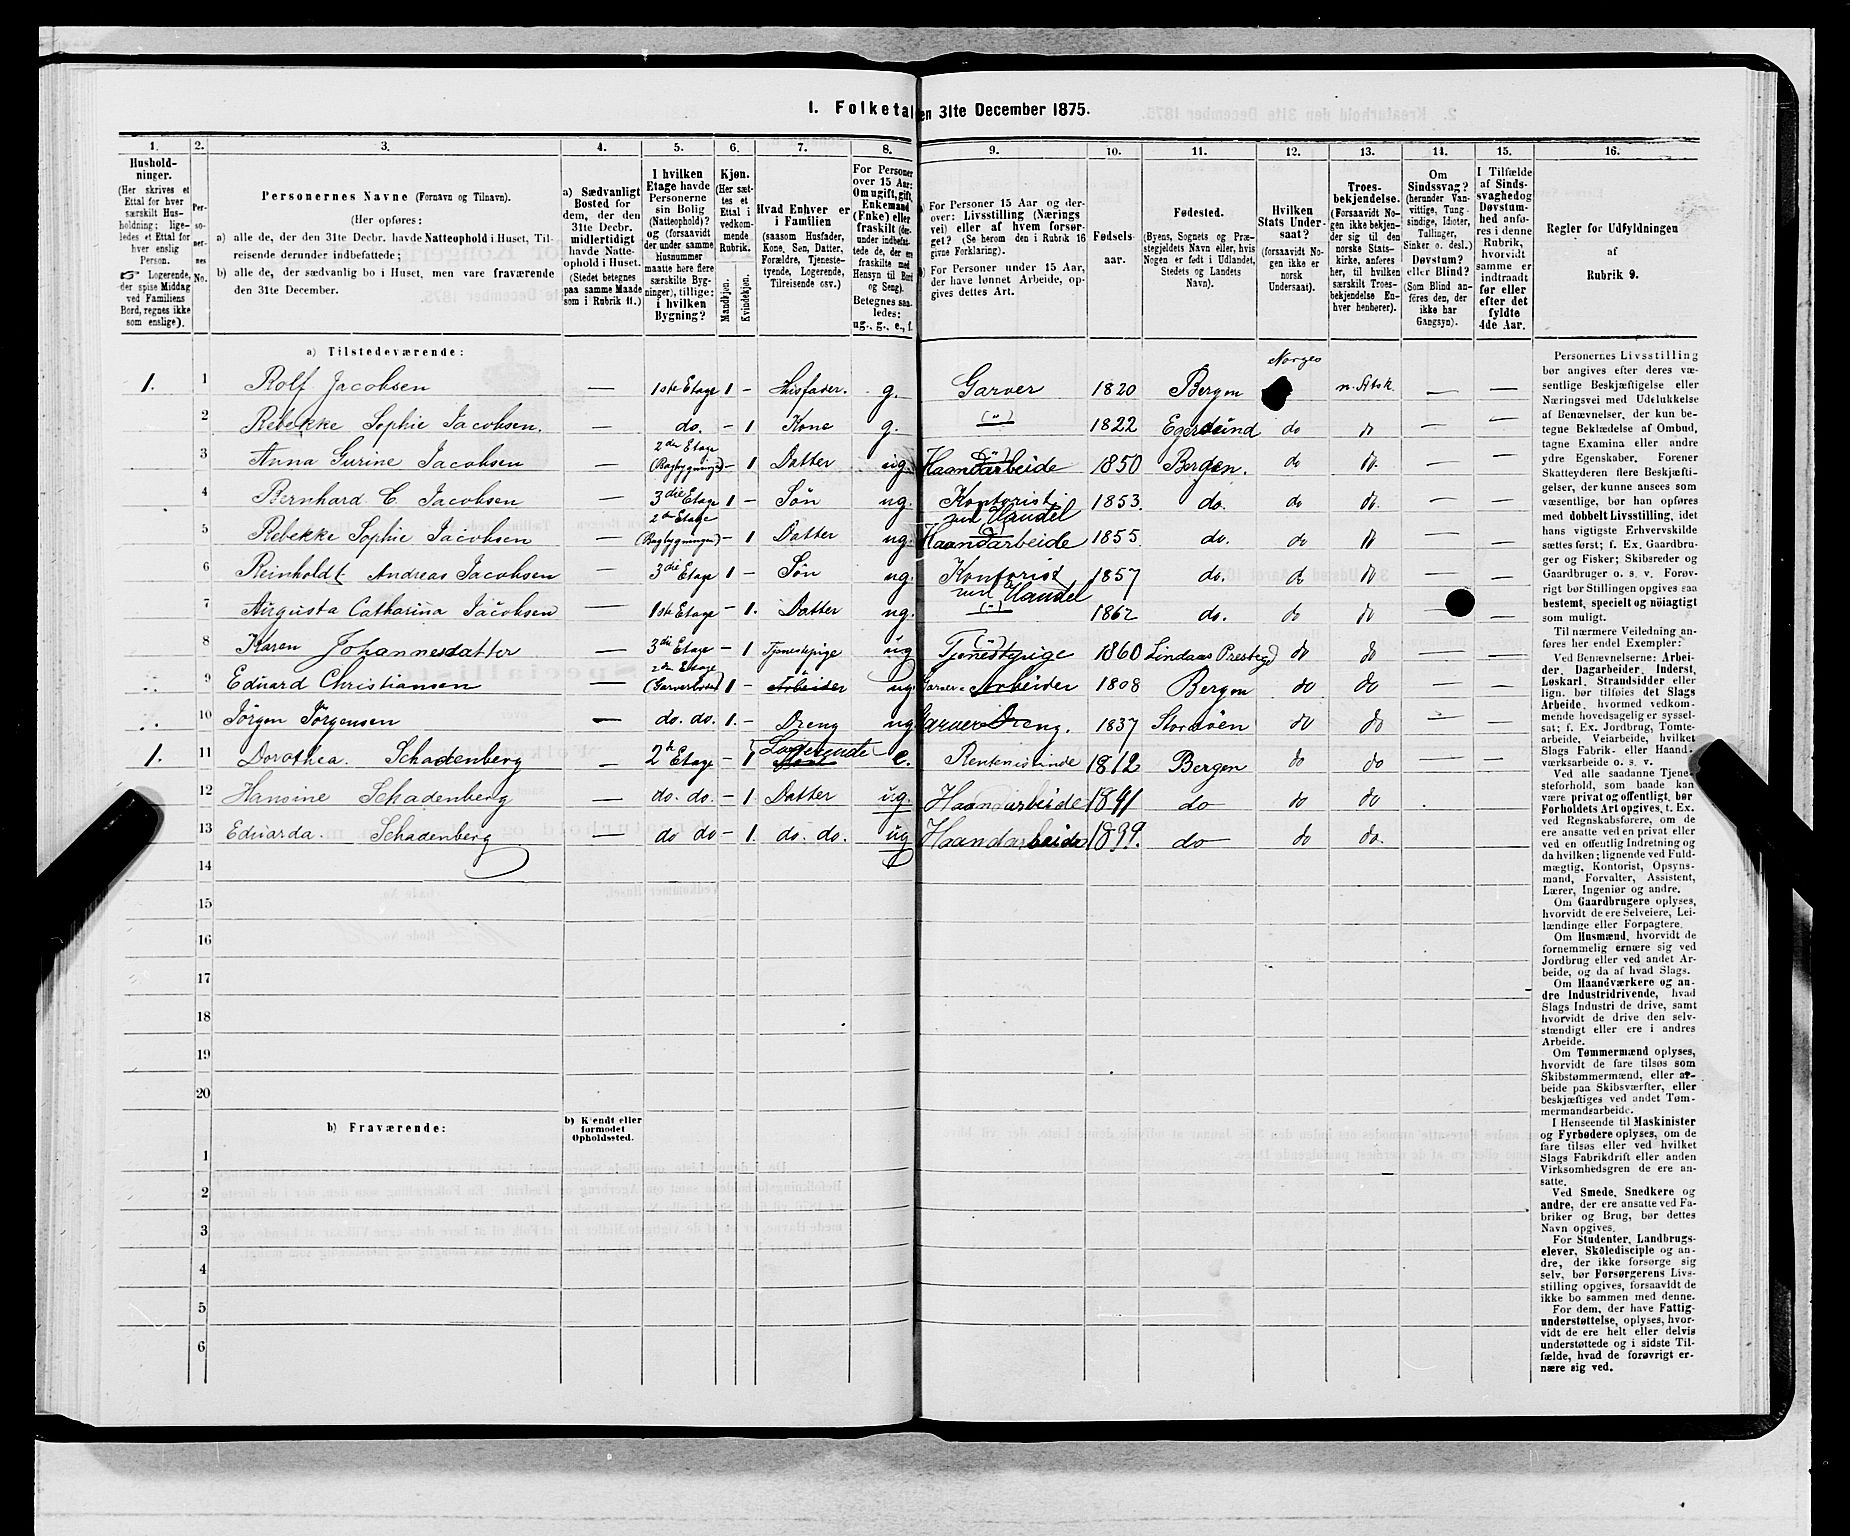 1. Folketal den 31te December 1875.
1. 2. 3. 4. 5. 6. 7. 8. 9. 10. 11. 12. 13. 14. 15. 16.
Husholdninger. (Her skrives et Ettal for hver særskilt Husholdning; ligeledes et Ettal for hver enslig Person. ☞ Logerende, der spise Middag ved Familiens Bord, regnes ikke som enslige).
Personernes No.
Personernes Navne (Fornavn og Tilnavn).
(Her opføres:
a) alle de, der den 31te Decbr. havde Natteophold i Huset, Tilreisende derunder indbefattede;
b) alle de, der sædvanlig bo i Huset, men vare fraværende den 31te December.
a) Sædvanligt Bosted for dem, der den 31te Decbr. midlertidigt havde Natteophold i Huset. (Stedet betegnes paa samme Maade som i Rubrik 11.)
I hvilken Etage havde Personerne sin Bolig (Natteophold)? og (forsaavidt der under samme Husnummer maatte høre flere særskilte Bygninger), tillige: i hvilken Bygning?
Kjøn. (Her sættes et Ettal i vedkommende Rubrik. Mandkjøn. Kvindekjøn.
Hvad Enhver er i Familien (saasom Husfader, Kone, Søn, Datter, Forældre, Tjenestetyende, Logerende, Tilreisende osv.)
For Personer over 15 Aar: Om ugift, gift, Enkemand (Enke) eller fraskilt (derunder indbefattede de, der ere fraskilte med Hensyn til Bord og Seng). Betegnes saaledes: ug., g., e., f.
a) For Personer 15 Aar og derover: Livsstilling (Næringsvei) eller af hvem forsørget? (Se herom den i Rubrik 16 givne Forklaring).
b) For Personer under 15 Aar, der have lønnet Arbeide, opgives dettes Art.
Fødselsaar.
Fødested. (Byens, Sognets og Præstegjeldets Navn eller, hvis Nogen er født i Udlandet, Stedets og Landets Navn).
Hvilken Stats Undersaat? (forsaavidt Nogen ikke er norsk Undersaat).
Troesbekjendelse. (Forsaavidt Nogen ikke bekjender sig til den norske Statskirke, anføres her, til hvilken særskilt Troesbekjendelse Enhver henhører).
Om Sindssvag? (herunder Vanvittige, Tungsindige, Idioter, Tullinger, Sinker o. desl.) Døvstum? eller Blind? (Som Blind anføres den, der ikke har Gangsyn).
I Tilfælde af Sindssvaghed og Døvstumhed anføres i denne Rubrik, hvorvidt samme er indtraadt før eller efter det fyldte 4de Aar.
Regler for Udfyldningen af Rubrik 9.
a) Tilstedeværende:
1. 1 Rolf Jacobsen — 1ste Etage 1 – Husfader. g. Garver 1820 Bergen Norges n. Stsk. — —
2 Rebekke Sophie Jacobsen. — do. – 1 Kone g. (") 1822 Egersund do do — —
3 Anna Gurine Jacobsen — 2den Etage (Bagbygningen) – 1 Datter ug. Haandarbeide 1850 Bergen. do do. — —
4 Bernhard C. Jacobsen — 3die Etage 1 – Søn ug. Kontorist ved Handel 1853. do. do do. — —
5 Rebekke Sophie Jacobsen — 2den Etage (Bagbygningen) – 1 Datter ug. Haandarbeide 1855. do. do do — —
6 Reinholdt Andreas Jacobsen — 3die Etage 1 – Søn ug. Kontorist ved Handel 1857 do. do do — —
7 Augusta Catharina Jacobsen — 1ste Etage – 1. Datter ug. (-) 1862 do. do do —
8 Karen Johannesdatter — 3die Etage – 1 Tjenestepige ug Tjenestepige 1860 Lindaas Prestegd do do — —
9 Eduard Christiansen — 2den Etage 1 – Arbeider ug. Garver-Arbeider 1808 Bergen do do — —
10 Jörgen Jörgensen — do. do. 1. – Dreng ug. Garver Dreng. 1837 do do — —
1. 11 Dorothea. Schadenberg — 2 Etage – 1 Logerende e. Rentenistinde 1812 Bergen do do — —
12 Hansine Schadenberg — do. do. – 1 Datter ug. Haandarbeide 1841 do do do.
13 Eduarda. Schadenberg — do do – 1. do. do. ug Haandarbeide do do do.
14
15
16
17
18
19
20
b) Fraværende:
b) Kjendt eller formodet Opholdssted.
1
2
3
4
5
6
Personernes Livsstilling
bør angives efter deres væ-
sentlige Beskjæftigelse eller
Næringsvei med Udelukkelse
af Benævnelser, der kun be-
tegne Beklædelse af Ombud,
tagne Examina eller andre
ydre Egenskaber. Forener
Skatteyderen flere Beskjæfti-
gelser, der kunne ansees som
væsentlige, bør han opføres
med dobbelt Livsstilling, idet
hans vigtigste Erhvervskilde
sættes først; f. Ex. Gaardbru-
ger og Fisker; Skibsreder og
Gaardbruger o. s. v. Forøv-
rigt bør Stillingen opgives saa
bestemt, specielt og nöiagtigt
som muligt.
Til nærmere Veiledning an-
føres her endel Exempler:
Ved Benævnelserne: Arbei-
der, Dagarbeider, Inderst,
Løskarl, Strandsidder eller
lign. bør tilføies det Slags
Arbeide, hvormed vedkom-
mende hovedsagelig er syssel-
sat; f. Ex. Jordbrug, Tomte-
arbeide, Veiarbeide, hvilket
Slags Fabrik- eller Haand-
værksarbeide o. s. v.
Ved alle saadanne Tjene-
steforhold, som baade kan
være privat og offentligt, bør
Forholdets Art opgives, t. Ex.
ved Regnskabsførere, om de
ere ansatte ved en privat eller
ved en offentlig Indretning og
da hvilken; lignende ved Fuld-
mægtig, Kontorist, Opsyns-
mand, Forvalter, Assistent,
Lærer, Ingeniør og andre.
Om Gaardbrugere oplyses,
hvorvidt de ere Selveiere, Lei-
lændinge eller Forpagtere.
Om Husmænd, hvorvidt de
fornemmelig ernære sig ved
Jordbrug eller ved andet Ar-
beide, og da af hvad Slags.
Om Haandværkere og an-
dre Industridrivende, hvad
Slags Industri de drive, samt
hvorvidt de drive den selv-
stændigt eller ere i andres
Arbeide.
Om Tømmermænd oplyses,
hvorvidt de fare tilsøs som
Skibstømmermænd, eller ar-
beide paa Skibsværfter, eller
beskjæftiges ved andet Tøm-
mermandsarbeide.
I Henseende til Maskinister
og Fyrbødere oplyses, om de
fare tilsøs eller ved hvilket
Slags Fabrikdrift eller anden
Virksomhedsgren de ere an-
satte.
Ved Smede, Snedkere og
andre, der ere ansatte ved Fa-
briker og Brug, bør dettes
Navn opgives.
For Studenter, Landbrugs-
elever, Skoledisciple og an-
dre, der ikke forsørge sig
selv, bør Forsørgerens Livs-
stilling opgives, forsaavidt de
ikke bo sammen med denne.
For dem, der have Fattig-
understøttelse, oplyses, hvor-
vidt de ere helt eller delvis
understøttede og i sidste Til-
fælde, hvad de forøvrigt er-
nære sig ved.